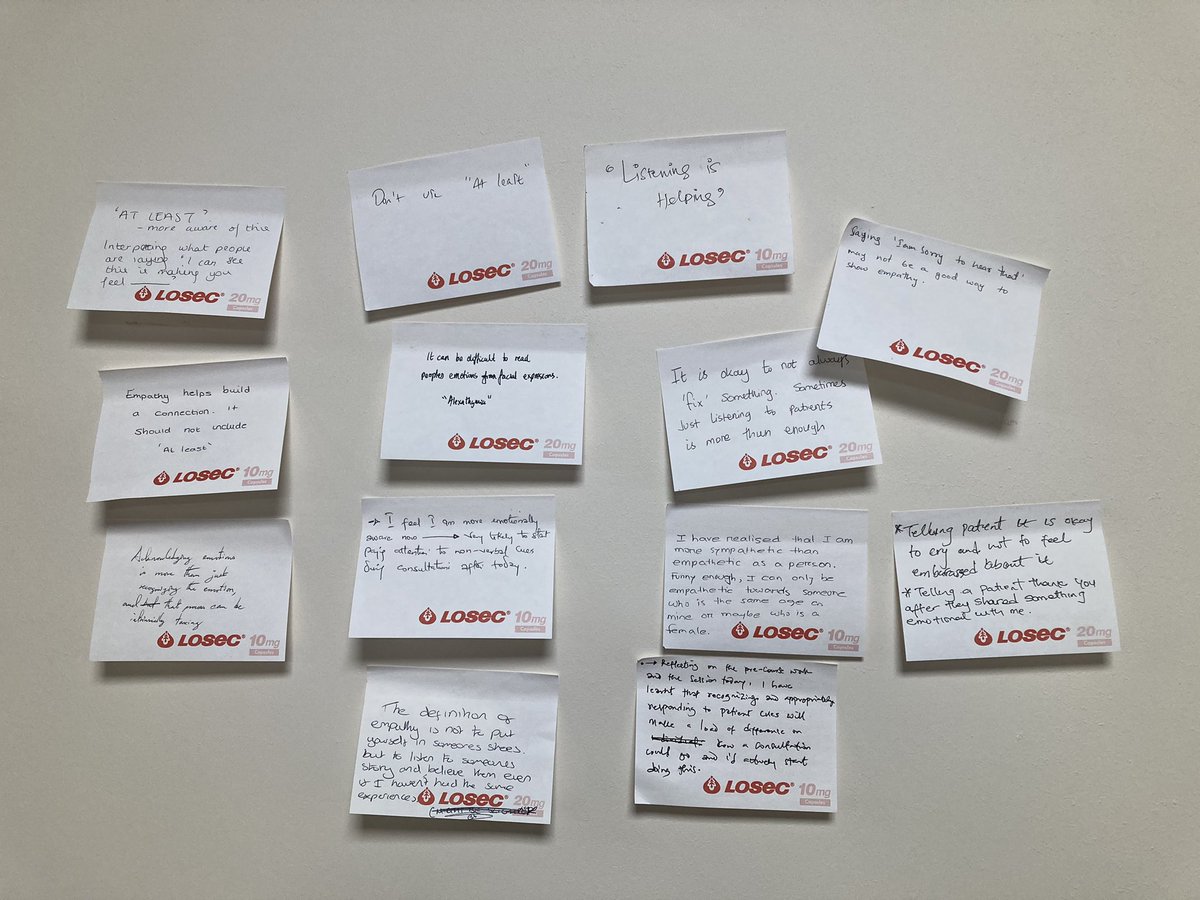 'AT LEAST'
- more aware of this
Interpreting what people
are saying "I can see
this is making you
feel ____"
LOSEC® 20mg
Capsules
Don't use "At least"
LOSEC® 20mg
Capsules
Listening is
Helping
LOSEC® 10mg
Capsules
Saying 'I am sorry to hear that'
may not be a good way to
show empathy.
LOSEC® 20mg
Capsules
Empathy helps build
a connection. it
should not include
"At least"
LOSEC® 10mg
Capsules
It can be difficult to read
peoples emotions from facial expressions.
"Alexathymia"
LOSEC® 20mg
Capsules
It is okay to not always
'fix' something. Sometimes
Just listening to patients
is more than enough
LOSEC® 20mg
Capsules
Acknowledging emotions
is more than just
recognizing the emotion,
and that process can be
taxing
LOSEC® 10mg
Capsules
→ I feel I am more emotionally
aware now → Very likely to start
paying attention to non-verbal cues
during consultations after today.
LOSEC® 10mg
Capsules
I have realised that I am
more sympathetic than
empathetic as a person.
Funny enough, I can only be
empathetic towards someone
who is the same age on
mine or maybe who is a
female.
LOSEC® 10mg
Capsules
* Telling patient it is okay
to cry and not to feel
embarassed about it
* Telling a patient thank you
after they shared something
emotional with me.
LOSEC® 20mg
Capsules
The definition of
empathy is not to put
yourself in someones shoes.
but to listen to someones
story and believe them even
if I haven't had the same
experiences
LOSEC® 20mg
→ Reflecting on the pre-course work
and the session today, I have
learnt that recognizing and appropriately
responding to patient cues will
make a load of difference on
how a consultation
could go and i'd actively start
doing this.
LOSEC® 10mg
Capsules